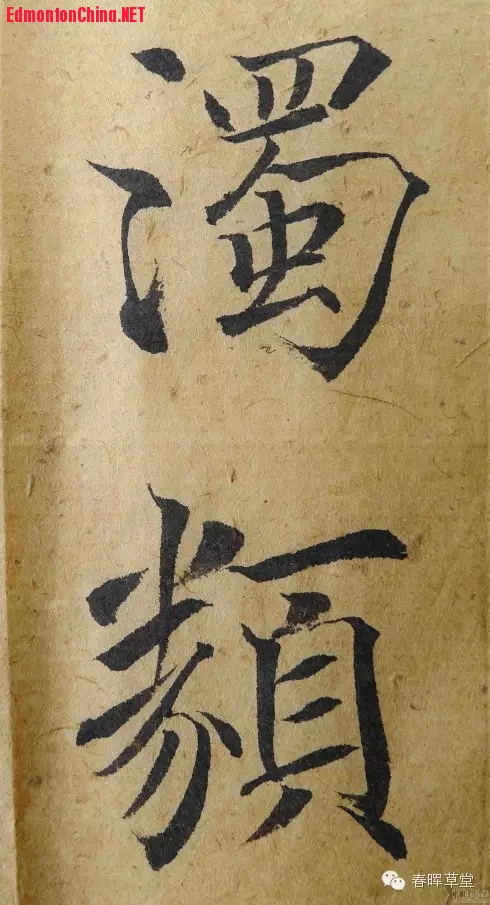 EdmontonChina.NET
濁
類
春晖草堂